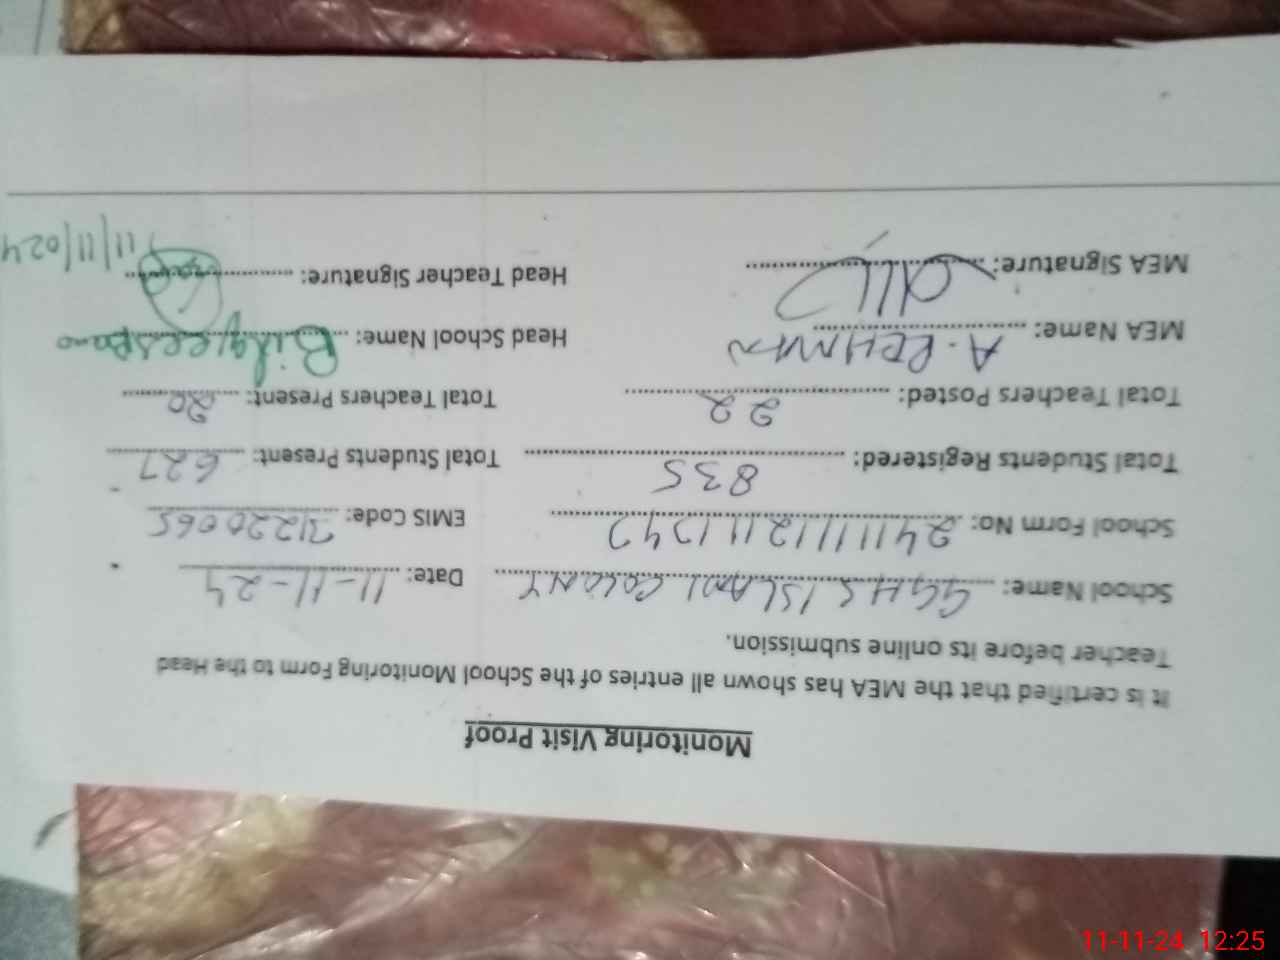 Monitoring Visit Proof
It is certified that the MEA has shown all entries of the School Monitoring Form to the Head
Teacher before its online submission.
School Name: GGHS ISLAMI COLONY Date: 11-11-24
School Form No: EMIS Code: 31220065
Total Students Registered: 835 Total Students Present: 627
Total Teachers Posted: 22 Total Teachers Present: 20
MEA Name: A. REHMAN Head School Name: Bilqees Bano
MEA Signature: Head Teacher Signature: 11/11/024
11-11-24 12:25